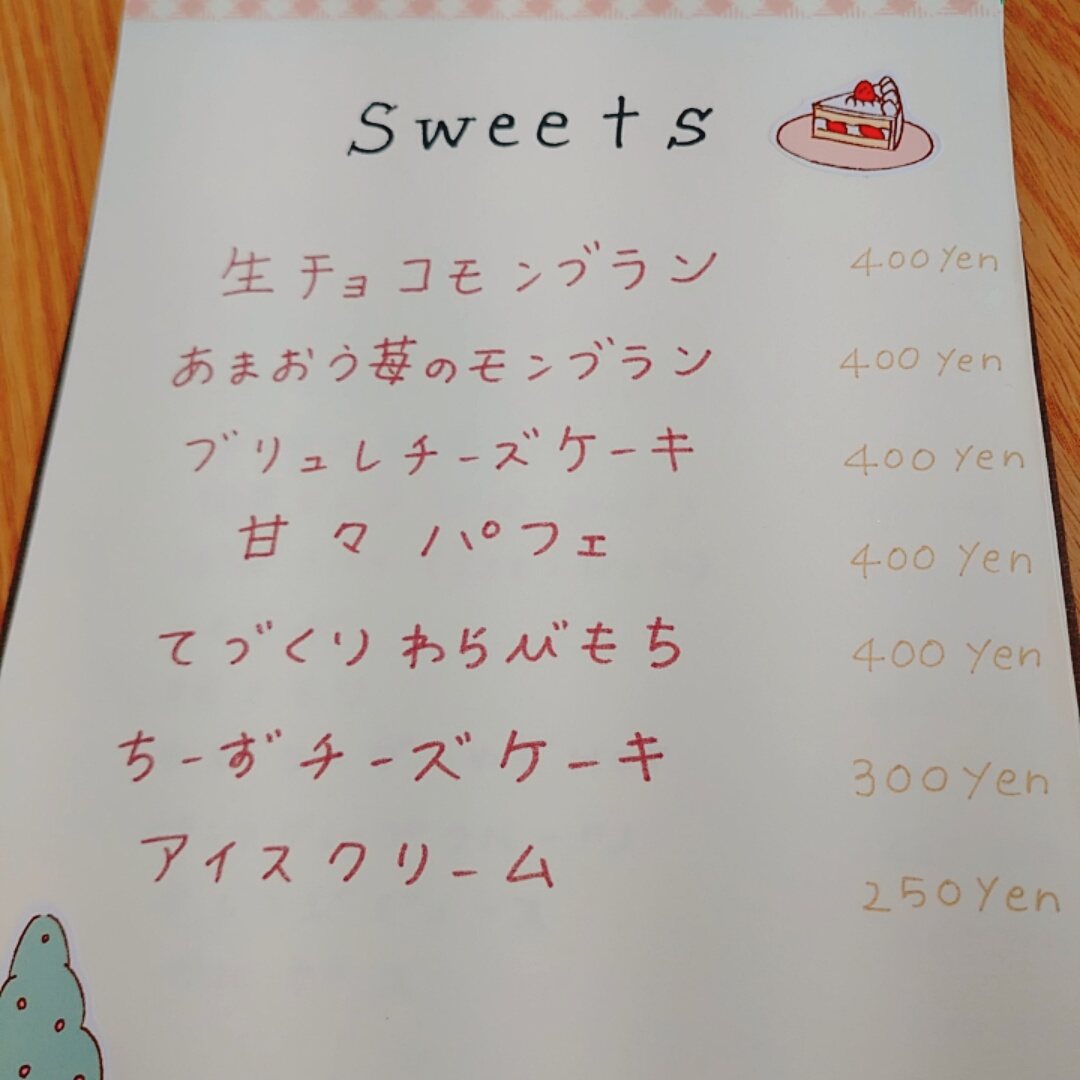 Sweets
生チョコモンブラン 400 Yen
あまおう苺のモンブラン 400 Yen
ブリュレチーズケーキ 400 Yen
甘々パフェ 400 Yen
てづくりわらびもち 400 Yen
ちーずチーズケーキ 300 Yen
アイスクリーム 250 Yen